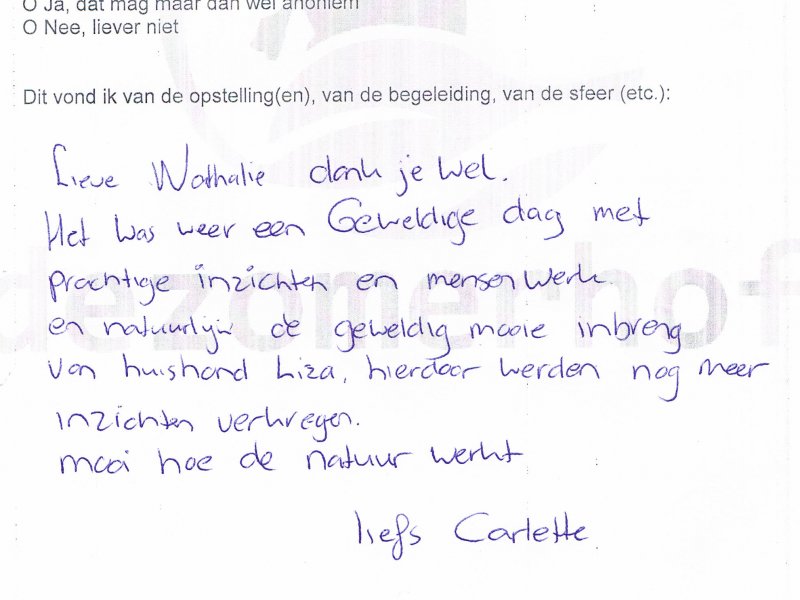 O Ja, dat mag maar dan wel anoniem
O Nee, liever niet
Dit vond ik van de opstelling(en), van de begeleiding, van de sfeer (etc.):
Lieve Nathalie dank je wel.
Het was weer een Geweldige dag met
prachtige inzichten en mensen werk.
en natuurlijk de geweldig mooie inbreng
van huishond Liza, hierdoor werden nog meer
inzichten verkregen.
mooi hoe de natuur werkt
liefs Carlette
dezomerhof